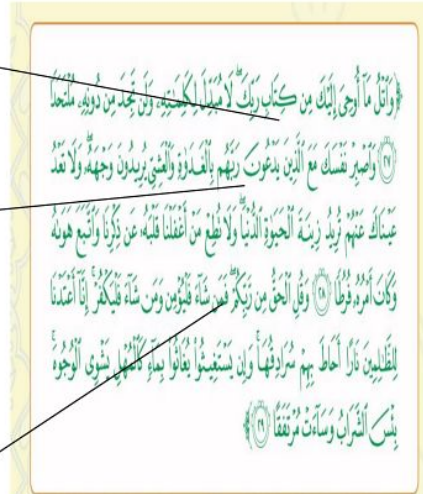 ﴿وَٱتْلُ مَآ أُوحِىَ إِلَيْكَ مِن كِتَابِ رَبِّكَ ۖ لَا مُبَدِّلَ لِكَلِمَـٰتِهِۦ وَلَن تَجِدَ مِن دُونِهِۦ مُلْتَحَدًا
﴿٢٧﴾ وَٱصْبِرْ نَفْسَكَ مَعَ ٱلَّذِينَ يَدْعُونَ رَبَّهُم بِٱلْغَدَوٰةِ وَٱلْعَشِىِّ يُرِيدُونَ وَجْهَهُۥ ۖ وَلَا تَعْدُ
عَيْنَاكَ عَنْهُمْ تُرِيدُ زِينَةَ ٱلْحَيَوٰةِ ٱلدُّنْيَا ۖ وَلَا تُطِعْ مَنْ أَغْفَلْنَا قَلْبَهُۥ عَن ذِكْرِنَا وَٱتَّبَعَ هَوَىٰهُ
وَكَانَ أَمْرُهُۥ فُرُطًا ﴿٢٨﴾ وَقُلِ ٱلْحَقُّ مِن رَّبِّكُمْ ۖ فَمَن شَآءَ فَلْيُؤْمِن وَمَن شَآءَ فَلْيَكْفُرْ ۚ إِنَّآ أَعْتَدْنَا
لِلظَّـٰلِمِينَ نَارًا أَحَاطَ بِهِمْ سُرَادِقُهَا ۚ وَإِن يَسْتَغِيثُوا۟ يُغَاثُوا۟ بِمَآءٍ كَٱلْمُهْلِ يَشْوِى ٱلْوُجُوهَ ۚ
بِئْسَ ٱلشَّرَابُ وَسَآءَتْ مُرْتَفَقًا ﴿٢٩﴾﴾